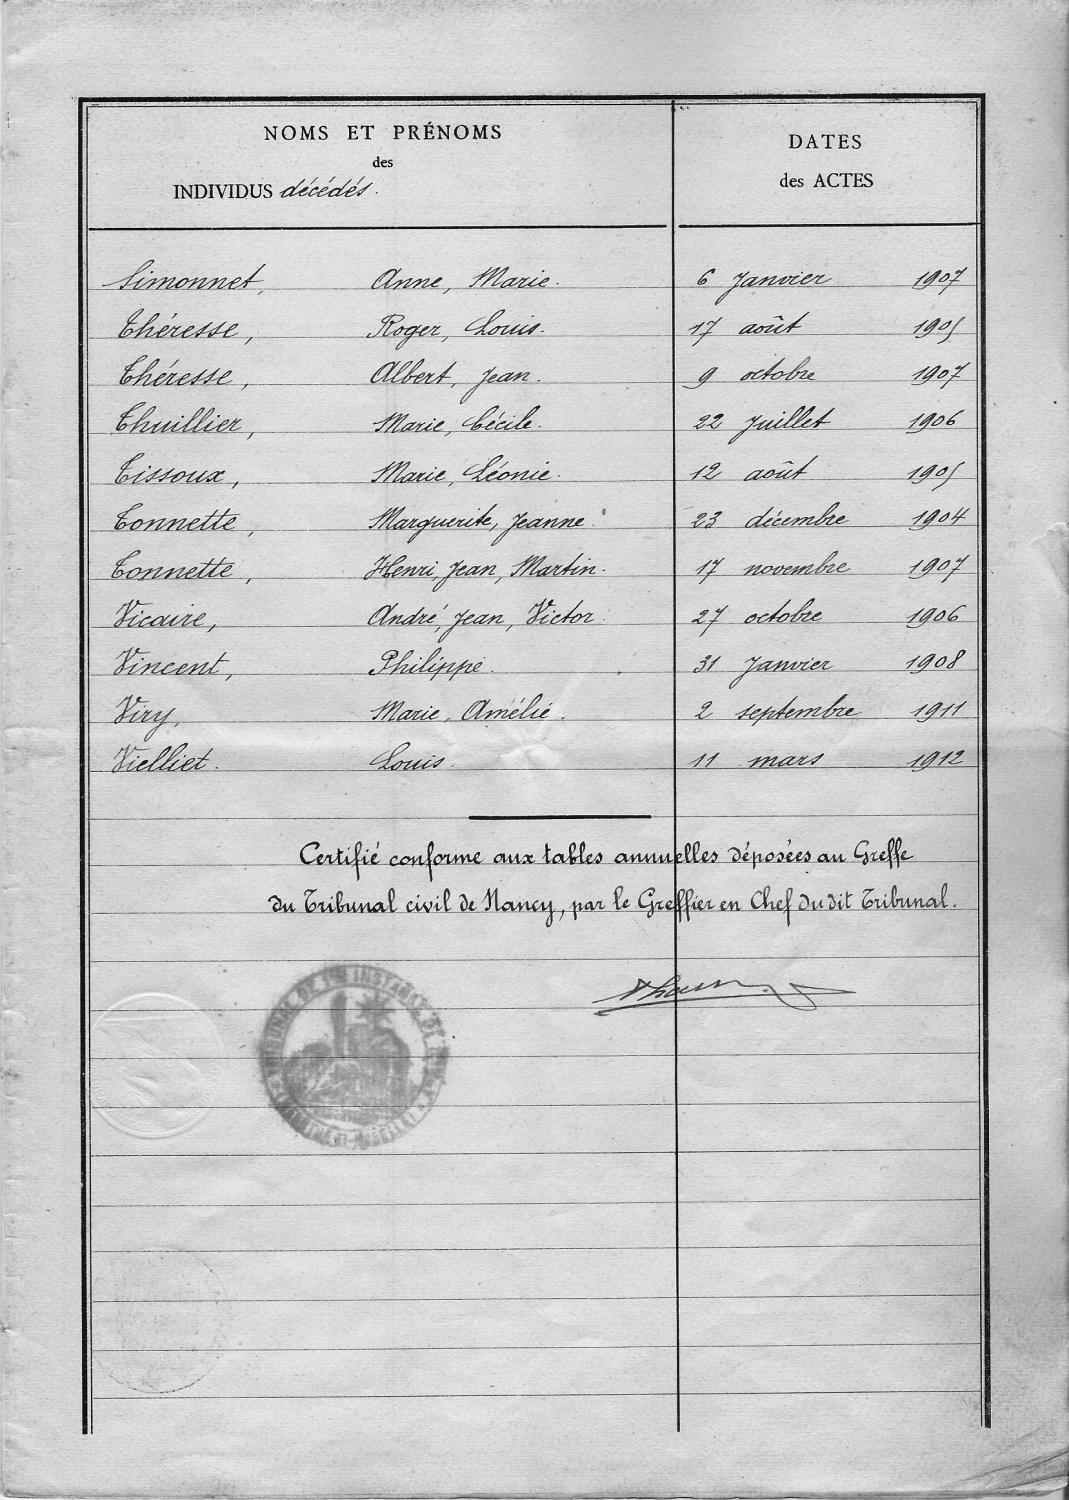 NOMS ET PRÉNOMS
des
INDIVIDUS décédés.
DATES
des ACTES
Simonnet, Anne, Marie. 6 Janvier 1907
Théresse, Roger, Louis. 17 août 1905
Théresse, Albert, Jean. 9 octobre 1907
Thuillier, Marie, Cécile. 22 Juillet 1906
Tissoux, Marie, Léonie. 12 août 1905
Tonnette, Marguerite, Jeanne. 23 décembre 1904
Tonnette, Henri, Jean, Martin. 17 novembre 1907
Vicaire, André, Jean, Victor. 27 octobre 1906
Vincent, Philippe. 31 Janvier 1908
Viry, Marie, Amélie. 2 septembre 1911
Vielliet. Louis. 11 mars 1912
Certifié conforme aux tables annuelles déposées au Greffe
du Tribunal civil de Nancy, par le Greffier en Chef du dit Tribunal.
TRIBUNAL DE 1RE INSTANCE DE NANCY
MEURTHE-ET-MOSELLE